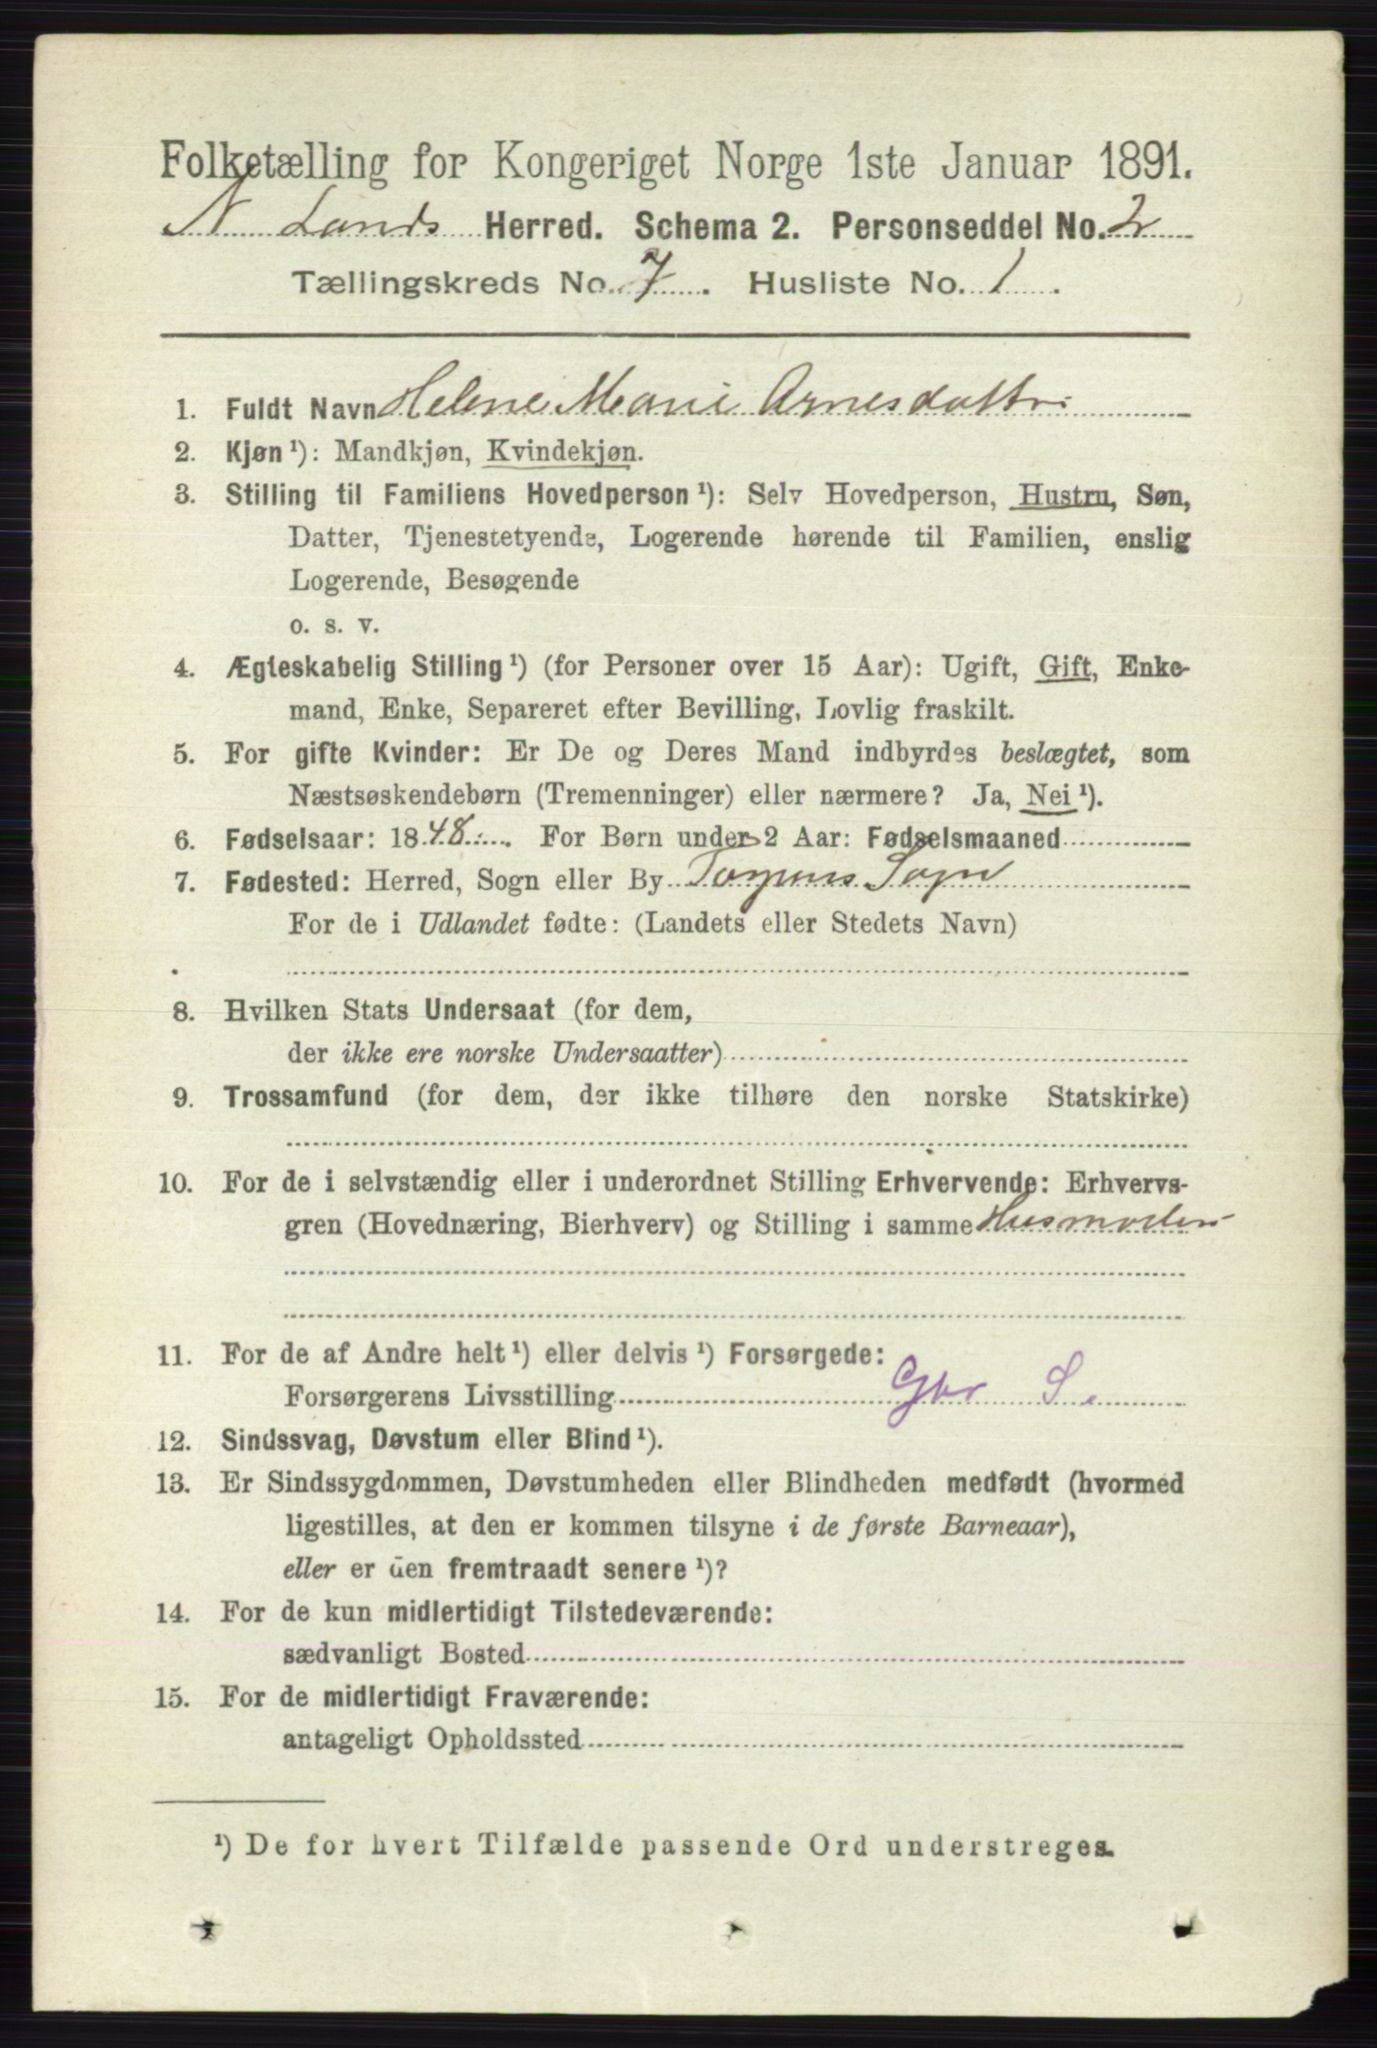 Folketælling for Kongeriget Norge 1ste Januar 1891.
N. Lands Herred. Schema 2. Personseddel No. 2
Tællingskreds No. 7. Husliste No. 1.
1. Fuldt Navn Helene Marie Arnesdatter
2. Kjøn ¹): Mandkjøn, Kvindekjøn.
3. Stilling til Familiens Hovedperson ¹): Selv Hovedperson, Hustru, Søn,
Datter, Tjenestetyende, Logerende hørende til Familien, enslig
Logerende, Besøgende
o. s. v.
4. Ægteskabelig Stilling ¹) (for Personer over 15 Aar): Ugift, Gift, Enke-
mand, Enke, Separeret efter Bevilling, Lovlig fraskilt.
5. For gifte Kvinder: Er De og Deres Mand indbyrdes beslægtet, som
Næstsøskendebørn (Tremenninger) eller nærmere? Ja, Nei ¹).
6. Fødselsaar: 1848. For Børn under 2 Aar: Fødselsmaaned
7. Fødested: Herred, Sogn eller By Torpens Sogn
For de i Udlandet fødte: (Landets eller Stedets Navn)
8. Hvilken Stats Undersaat (for dem,
der ikke ere norske Undersaatter)
9. Trossamfund (for dem, der ikke tilhøre den norske Statskirke)
10. For de i selvstændig eller i underordnet Stilling Erhvervende: Erhvervs-
gren (Hovednæring, Bierhverv) og Stilling i samme Husmoder
11. For de af Andre helt ¹) eller delvis ¹) Forsørgede:
Forsørgerens Livsstilling Gbr S.
12. Sindssvag, Døvstum eller Blind ¹).
13. Er Sindssygdommen, Døvstumheden eller Blindheden medfødt (hvormed
ligestilles, at den er kommen tilsyne i de første Barneaar),
eller er den fremtraadt senere ¹)?
14. For de kun midlertidigt Tilstedeværende:
sædvanligt Bosted
15. For de midlertidigt Fraværende:
antageligt Opholdssted
¹) De for hvert Tilfælde passende Ord understreges.